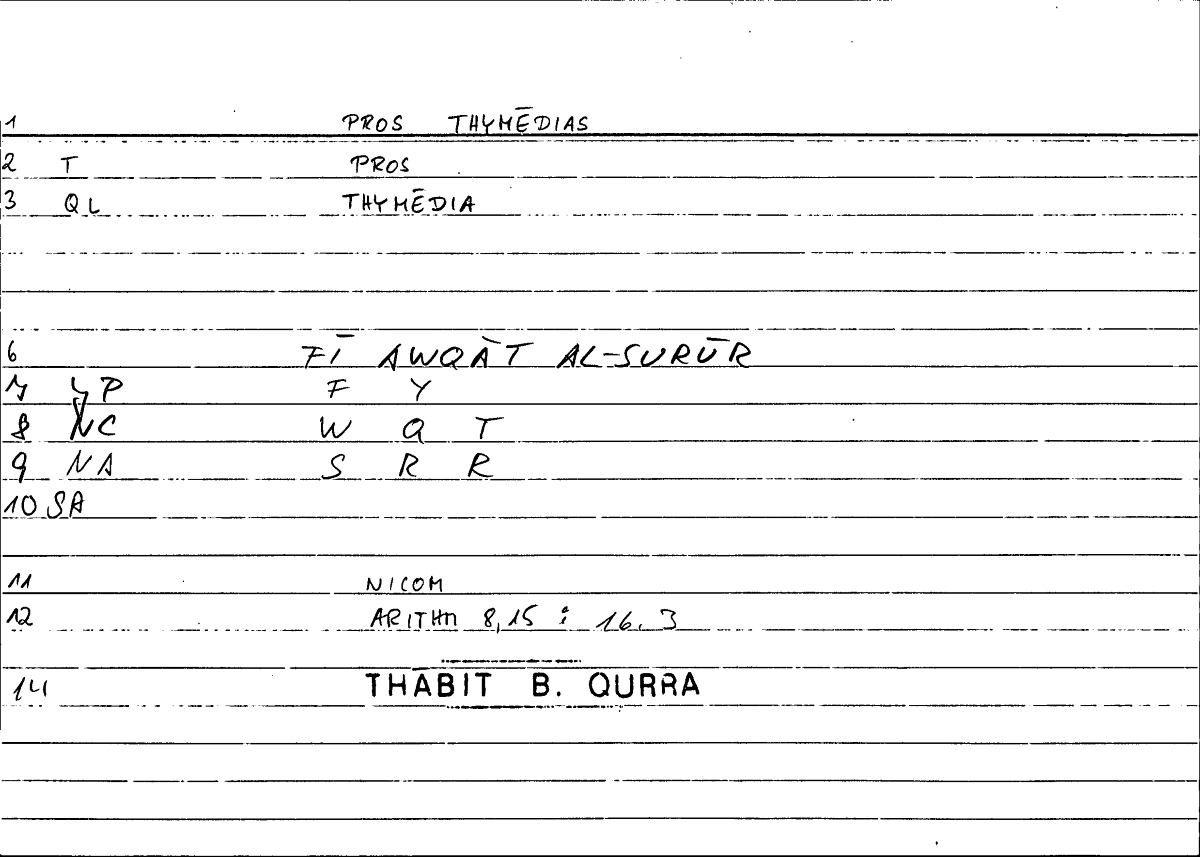 1 PROS THYMĒDIAS
2 T PROS
3 QL THYMĒDIA
6 FĪ AWQĀT AL-SURŪR
7 LP F Y
8 NC W Q T
9 NA S R R
10 SA
11 NICOM
12 ARITHM 8,15 : 16.3
14 THĀBIT B. QURRA